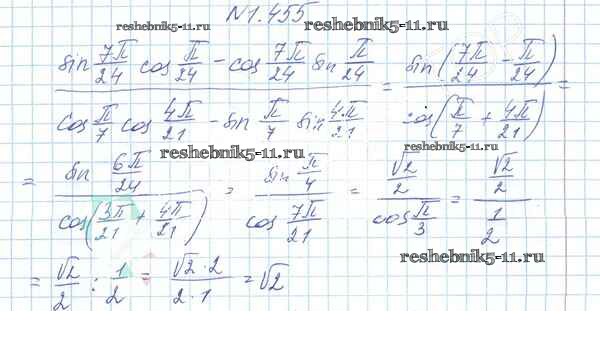 N1.455
reshebnik5-11.ru reshebnik5-11.ru
(sin 7π/24 cos π/24 - cos 7π/24 sin π/24) / (cos π/7 cos 4π/21 - sin π/7 sin 4π/21) = sin(7π/24 - π/24) / cos(π/7 + 4π/21) =
reshebnik5-11.ru reshebnik5-11.ru
= sin 6π/24 / cos(3π/21 + 4π/21) = sin π/4 / cos 7π/21 = √2/2 / cos π/3 = √2/2 / 1/2
reshebnik5-11.ru
= √2/2 : 1/2 = √2·2 / 2·1 = √2
reshebnik5-11.ru